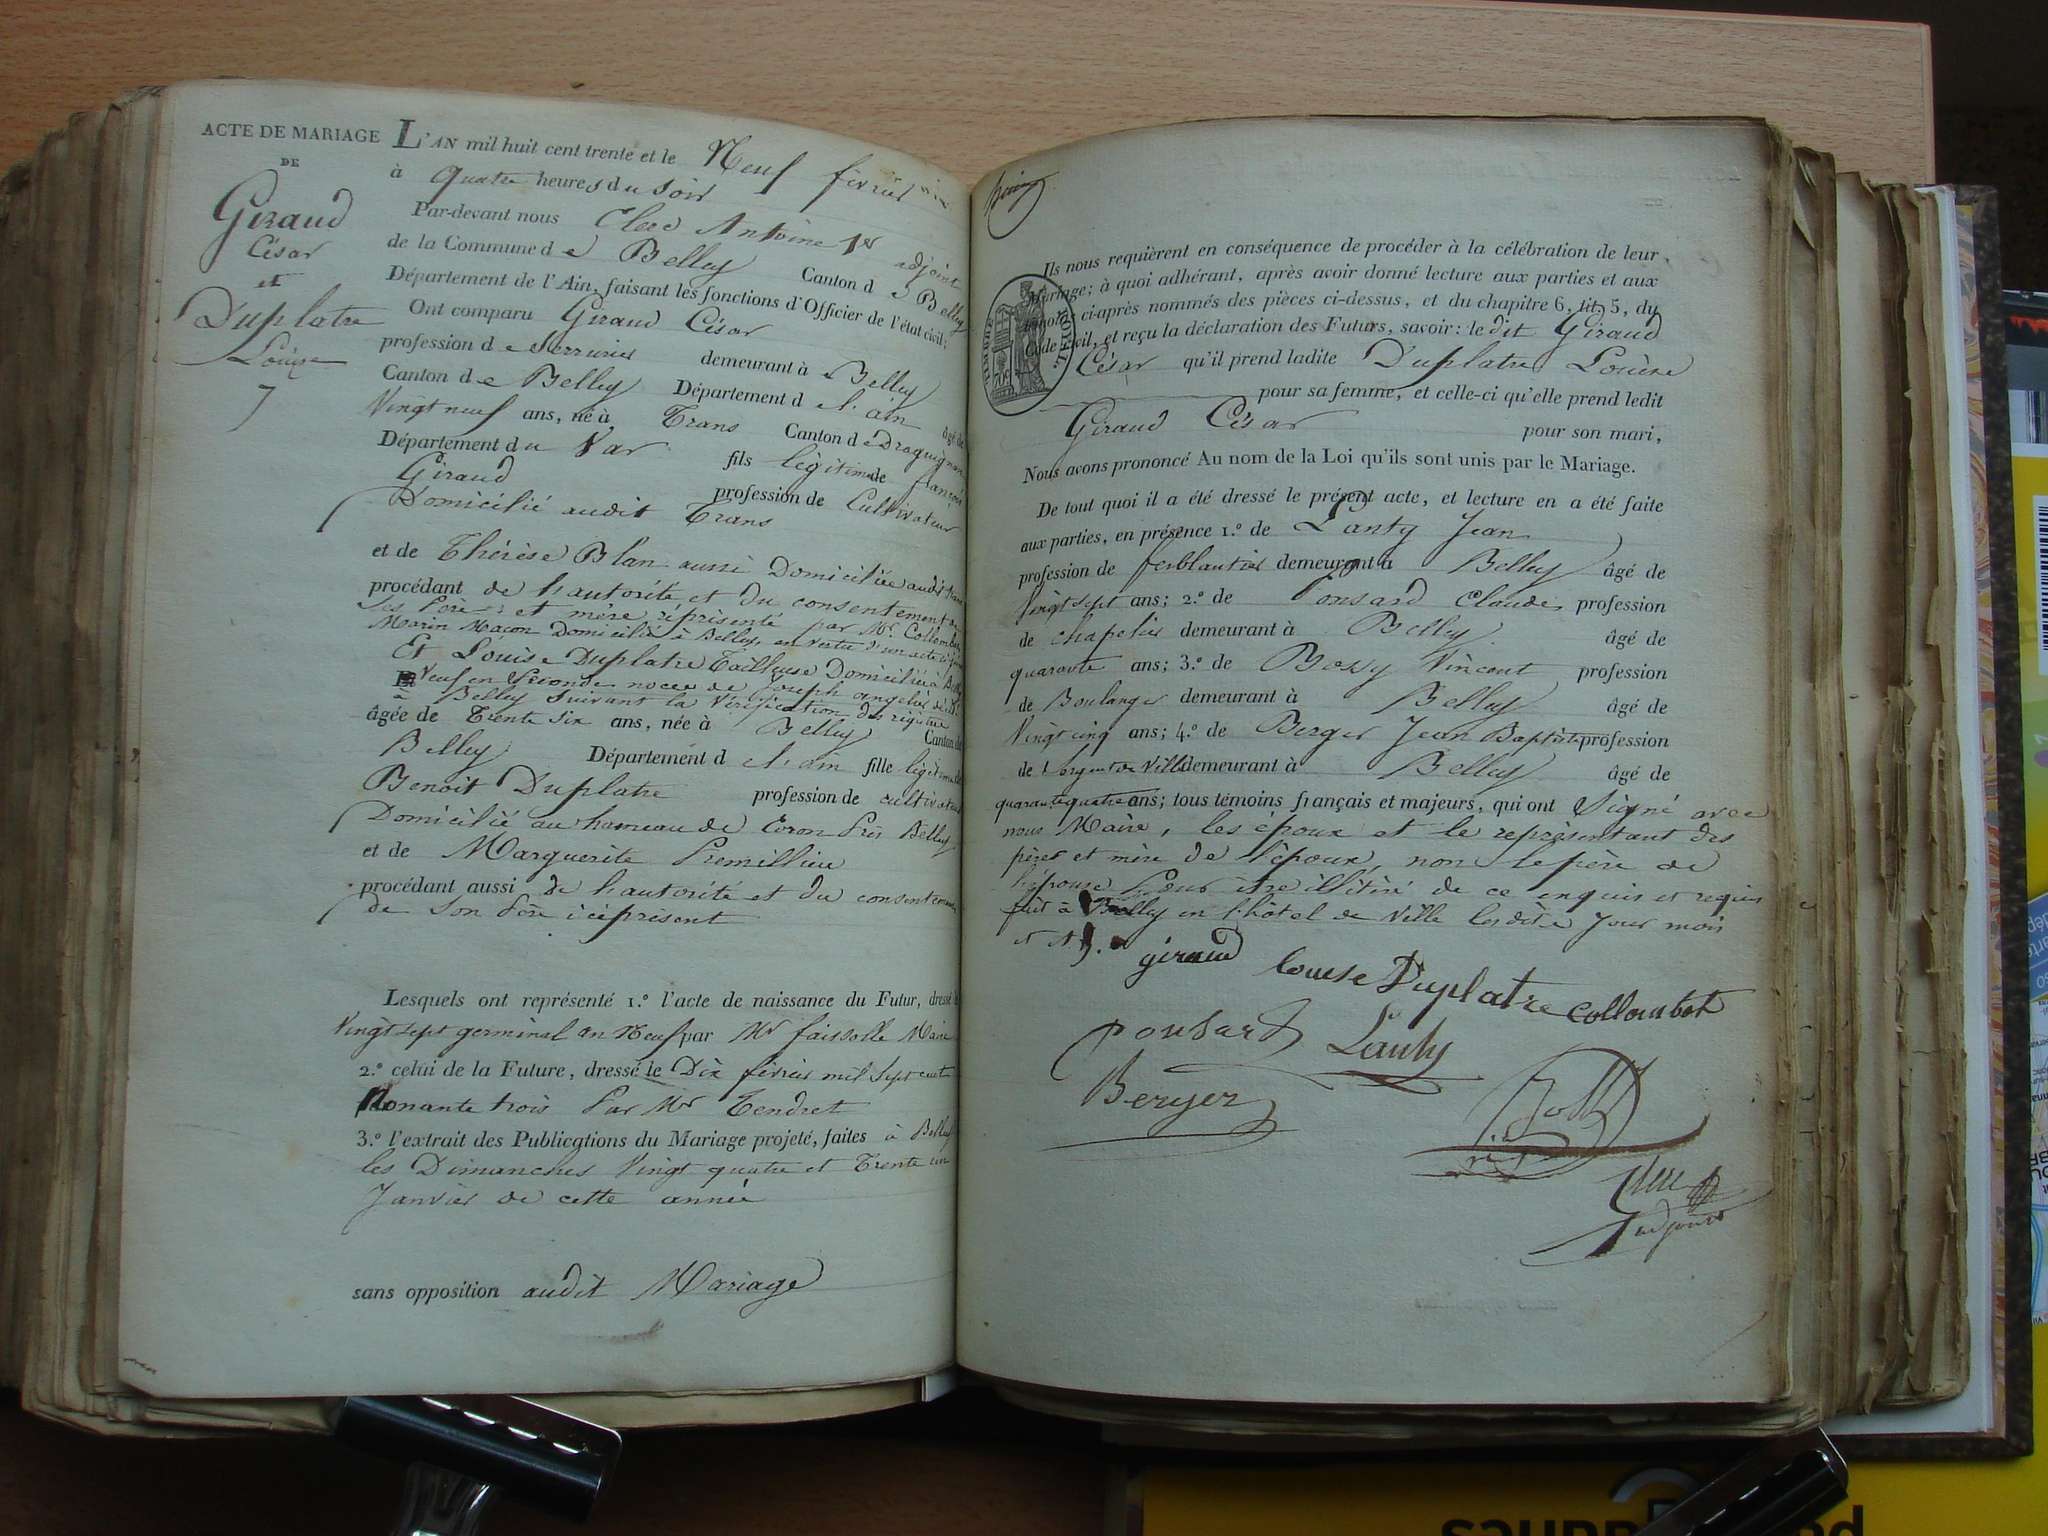 ACTE DE MARIAGE
DE
Giraud
César
et
Duplatre
Louise
7
L'AN mil huit cent trente et le Neuf février
à quatre heures du soir
Par-devant nous Clerc Antoine 1er adjoint
de la Commune de Belley Canton de Belley
Département de l'Ain, faisant les fonctions d'Officier de l'état civil;
Ont comparu Giraud César
profession de Serrurier demeurant à Belley
Canton de Belley Département de l'ain âgé de
Vingt neuf ans, né à Trans Canton de Draguignan
Département du Var fils légitime de françois
Giraud profession de Cultivateur
Domicilié audit Trans
et de Thérèse Blan aussi Domiciliée audit Trans
procédant de l'autorité et du consentement de
Ses Père et mère réprésenté par Mr. Collombet
Marin Maçon Domicilié à Belley, en vertu d'un acte
Et Louise Duplatre Tailleuse Domiciliée à Belley
Veuf en Seconde noces de Joseph
à Belley Suivant la Vérification des registres
âgée de Trente Six ans, née à Belley Canton de
Belley Département de l'ain fille légitime de
Benoit Duplatre profession de cultivateur
Domicilié au hameau de Coron Près Belley
et de Marguerite Premillieu
procédant aussi de l'autorité et du consentement
de Son Père icéprésent
Lesquels ont représenté 1.º l'acte de naissance du Futur, dressé le
Vingt sept germinal an Neuf par Mr faissolle Maire
2.º celui de la Future, dressé le Dix février mil Sept cent
Nonante trois Par Mr Tendret
3.º l'extrait des Publications du Mariage projeté, faites à Belley
les Dimanches Vingt quatre et Trente un
Janvier de cette année
sans opposition audit Mariage
Ils nous requièrent en conséquence de procéder à la célébration de leur
Mariage; à quoi adhérant, après avoir donné lecture aux parties et aux
témoins ci-après nommés des pièces ci-dessus, et du chapitre 6, tit. 5, du
Code civil, et reçu la déclaration des Futurs, savoir: le dit Giraud
César qu'il prend ladite Duplatre Louise
pour sa femme, et celle-ci qu'elle prend ledit
Giraud César pour son mari,
TIMBRE ROYAL
70c
Nous avons prononcé Au nom de la Loi qu'ils sont unis par le Mariage.
De tout quoi il a été dressé le présent acte, et lecture en a été faite
aux parties, en présence 1.º de Lanty Jean
profession de ferblantier demeurant à Belley âgé de
Vingt sept ans; 2.º de Ponsard Claude profession
de chapelier demeurant à Belley âgé de
quarante ans; 3.º de Bossy Vincent profession
de Boulanger demeurant à Belley âgé de
Vingt cinq ans; 4.º de Berger Jean Baptiste profession
de Sergent de Ville demeurant à Belley âgé de
quarante quatre ans; tous témoins français et majeurs, qui ont Signé avec
nous Maire, les époux et le représentant des
père et mère de l'époux, non le père de
l'épouse Pour être illitiré de ce enquis et requis
fait à Belley en l'hôtel de Ville lesdits Jour mois
et an.
giraud louise Duplatre collombet
Ponsard Lanty
Berger
Clerc
adjoint